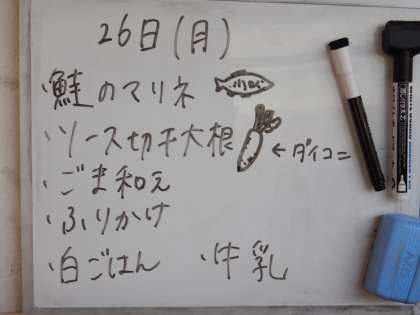 26日(月)
・鮭のマリネ
・ソース切干大根
←ダイコン
・ごま和え
・ふりかけ
・白ごはん ・牛乳